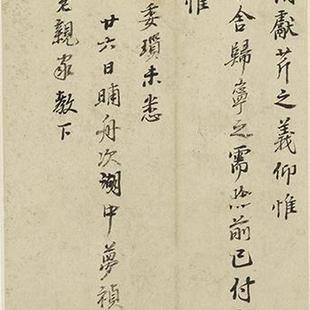 獻芹之義仰惟
舍歸寧之需照前已付
惟
委瑣未悉
廿六日晡舟次湖中夢禎
親家教下